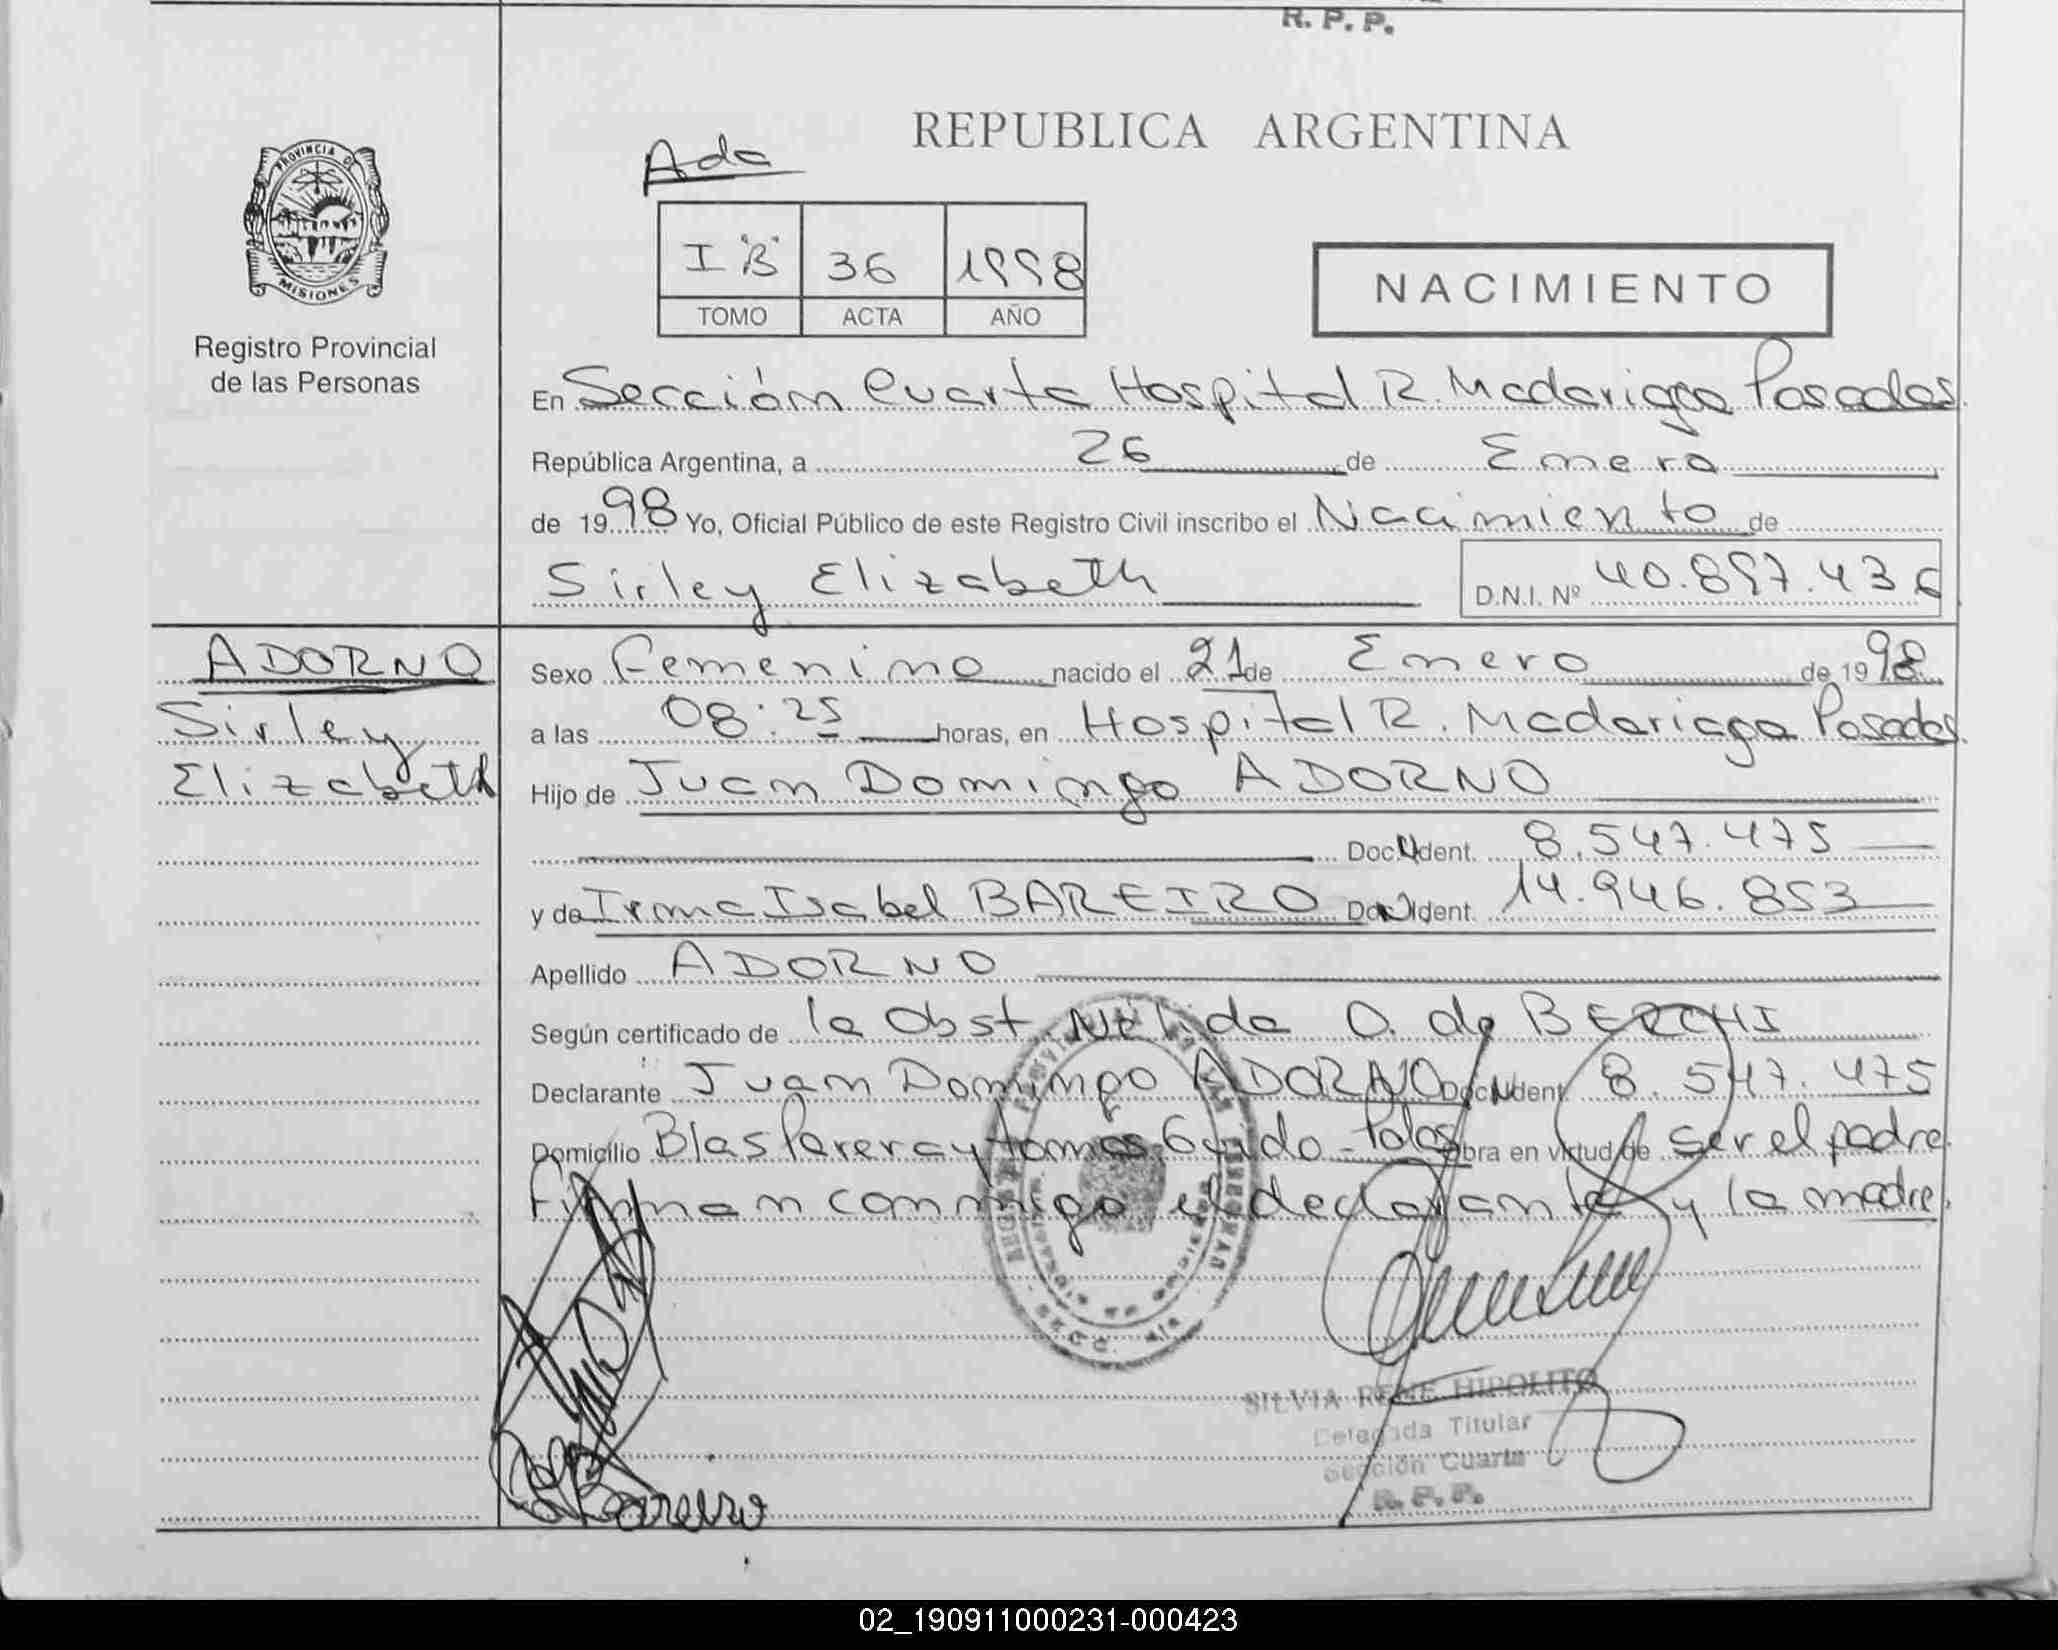 R. P. P.
REPUBLICA ARGENTINA
Ada
PROVINCIA DE
MISIONES
I "B" 36 1998
TOMO ACTA AÑO
NACIMIENTO
Registro Provincial
de las Personas
En Sección Cuarta Hospital R. Madariaga Posadas
República Argentina, a 26 de Enero
de 1998 Yo, Oficial Público de este Registro Civil inscribo el Nacimiento de
Sirley Elizabeth D.N.I. Nº 40.897.436
ADORNO
Sirley
Elizabeth
Sexo Femenino nacido el 21 de Enero de 1998
a las 08:25 horas, en Hospital R. Madariaga Posadas
Hijo de Juan Domingo ADORNO
Doc. Ident. 8.547.475
y de Irma Isabel BAREIRO Doc. Ident. 14.946.853
Apellido ADORNO
Según certificado de la Obst. Nélida O. de BERCHI
Declarante Juan Domingo ADORNO Doc. Ident. 8.547.475
Domicilio Blas Parera y tomas Guido - Pdas obra en virtud de ser el padre
Firman conmigo el declarante y la madre.
Bareiro
SILVIA RENE HIPOLITO
Delegada Titular
Sección Cuarta
R. P. P.
02_190911000231-000423